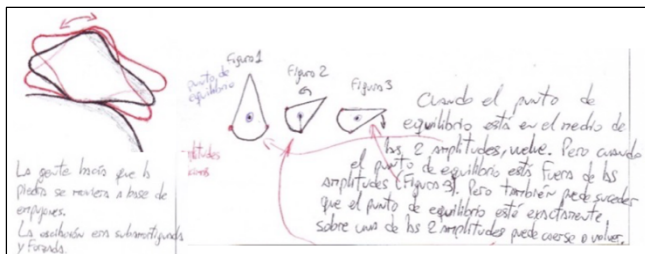 La gente hacía que la
piedra se moviera a base de
empujones.
La oscilación era subamortiguada
y forzada.
Figura 1
punto de
equilibrio
Figura 2
Figura 3
Cuando el punto de
equilibrio está en el medio de
las 2 amplitudes, vuelve. Pero cuando
el punto de equilibrio está fuera de las
amplitudes (Figura 3). Pero también puede suceder
que el punto de equilibrio esté exactamente
sobre una de las 2 amplitudes puede caerse o volver.